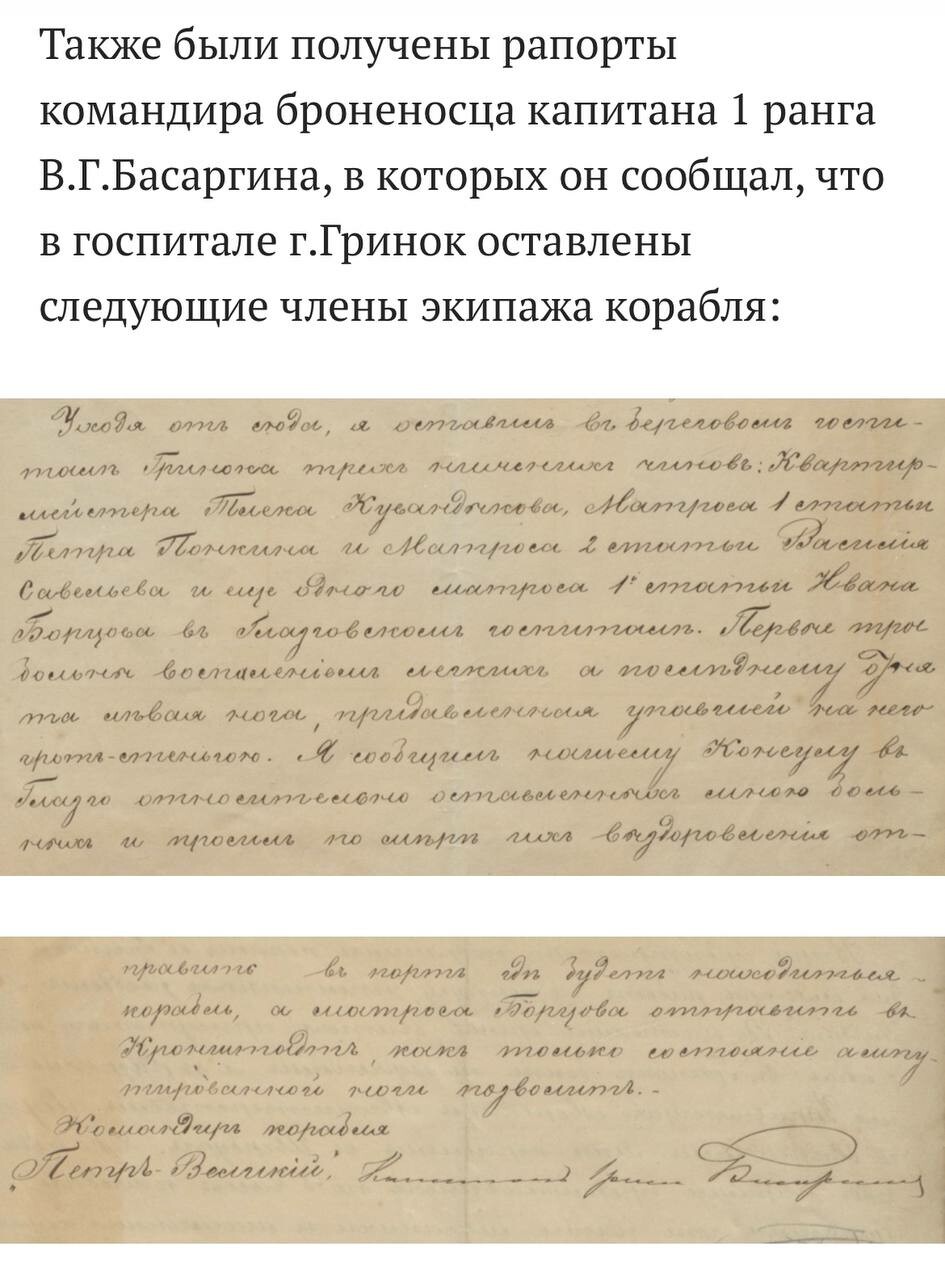 Также были получены рапорты
командира броненосца капитана 1 ранга
В.Г.Басаргина, в которых он сообщал, что
в госпитале г.Гринок оставлены
следующие члены экипажа корабля:
Уходя отъ сюда, я оставилъ въ береговомъ госпи-
талѣ Гринока трехъ нижнихъ чиновъ: Квартир-
мейстера Тлека Кувандыкова, Матроса 1 статьи
Петра Понкина и Матроса 2 статьи Василія
Савельева и еще одного матроса 1й статьи Ивана
Борцова въ Глазговскомъ госпиталѣ. Первые трое
больны воспаленіемъ легкихъ а послѣднему
та лѣвая нога, придавленная упавшей на него
гротъ-стеньгою. Я сообщилъ нашему Консулу въ
Глазго относительно оставленныхъ мною боль-
ныхъ и просилъ по мѣрѣ ихъ выздоровленія от-
править въ портъ гдѣ будетъ находиться
корабль, а матроса Борцова отправить въ
Кронштадтъ, какъ только состояніе ампу-
тированной ноги позволитъ.-
Командиръ корабля
"Петръ-Великій" Капитанъ 1 ранга Басаргинъ